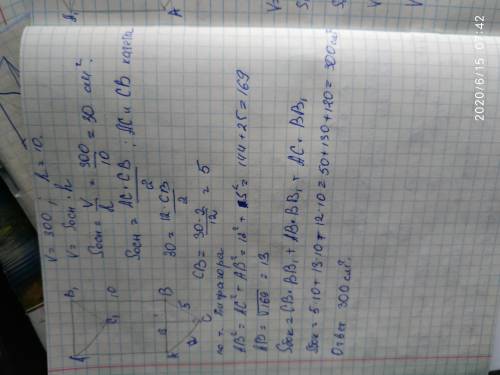 V = 300 ; h = 10.
V = Sосн · h
Sосн = V/h = 300/10 = 30 см².
Sосн = AC · CB / 2 ; AC и CB катета
30 = 12 · CB / 2
CB = 30 · 2 / 12 = 5
по т. Пифагора
AB² = AC² + AB² = 12² + 5² = 144 + 25 = 169
AB = √169 = 13
Sбок = CB · BB₁ + AB · BB₁ + AC · BB₁
Sбок = 5 · 10 + 13 · 10 + 12 · 10 = 50 + 130 + 120 = 300 см²
Ответ 300 см².
A
B₁
C₁
10
A
B
5
C
2020/6/15 07:42